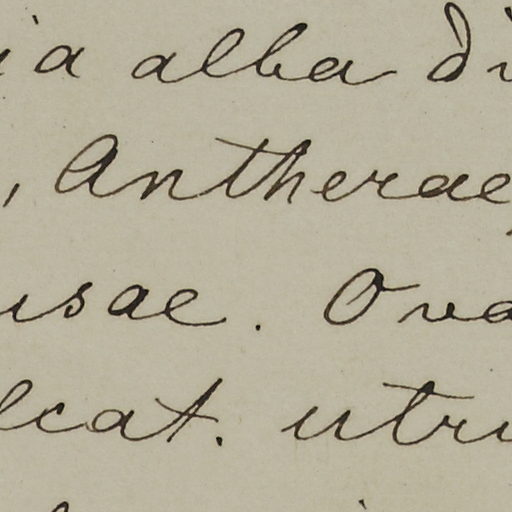 ia alba di
, Antherae
usae. Ova
lcat. utru